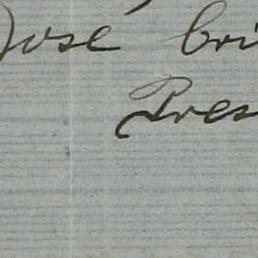 José bri
Pres